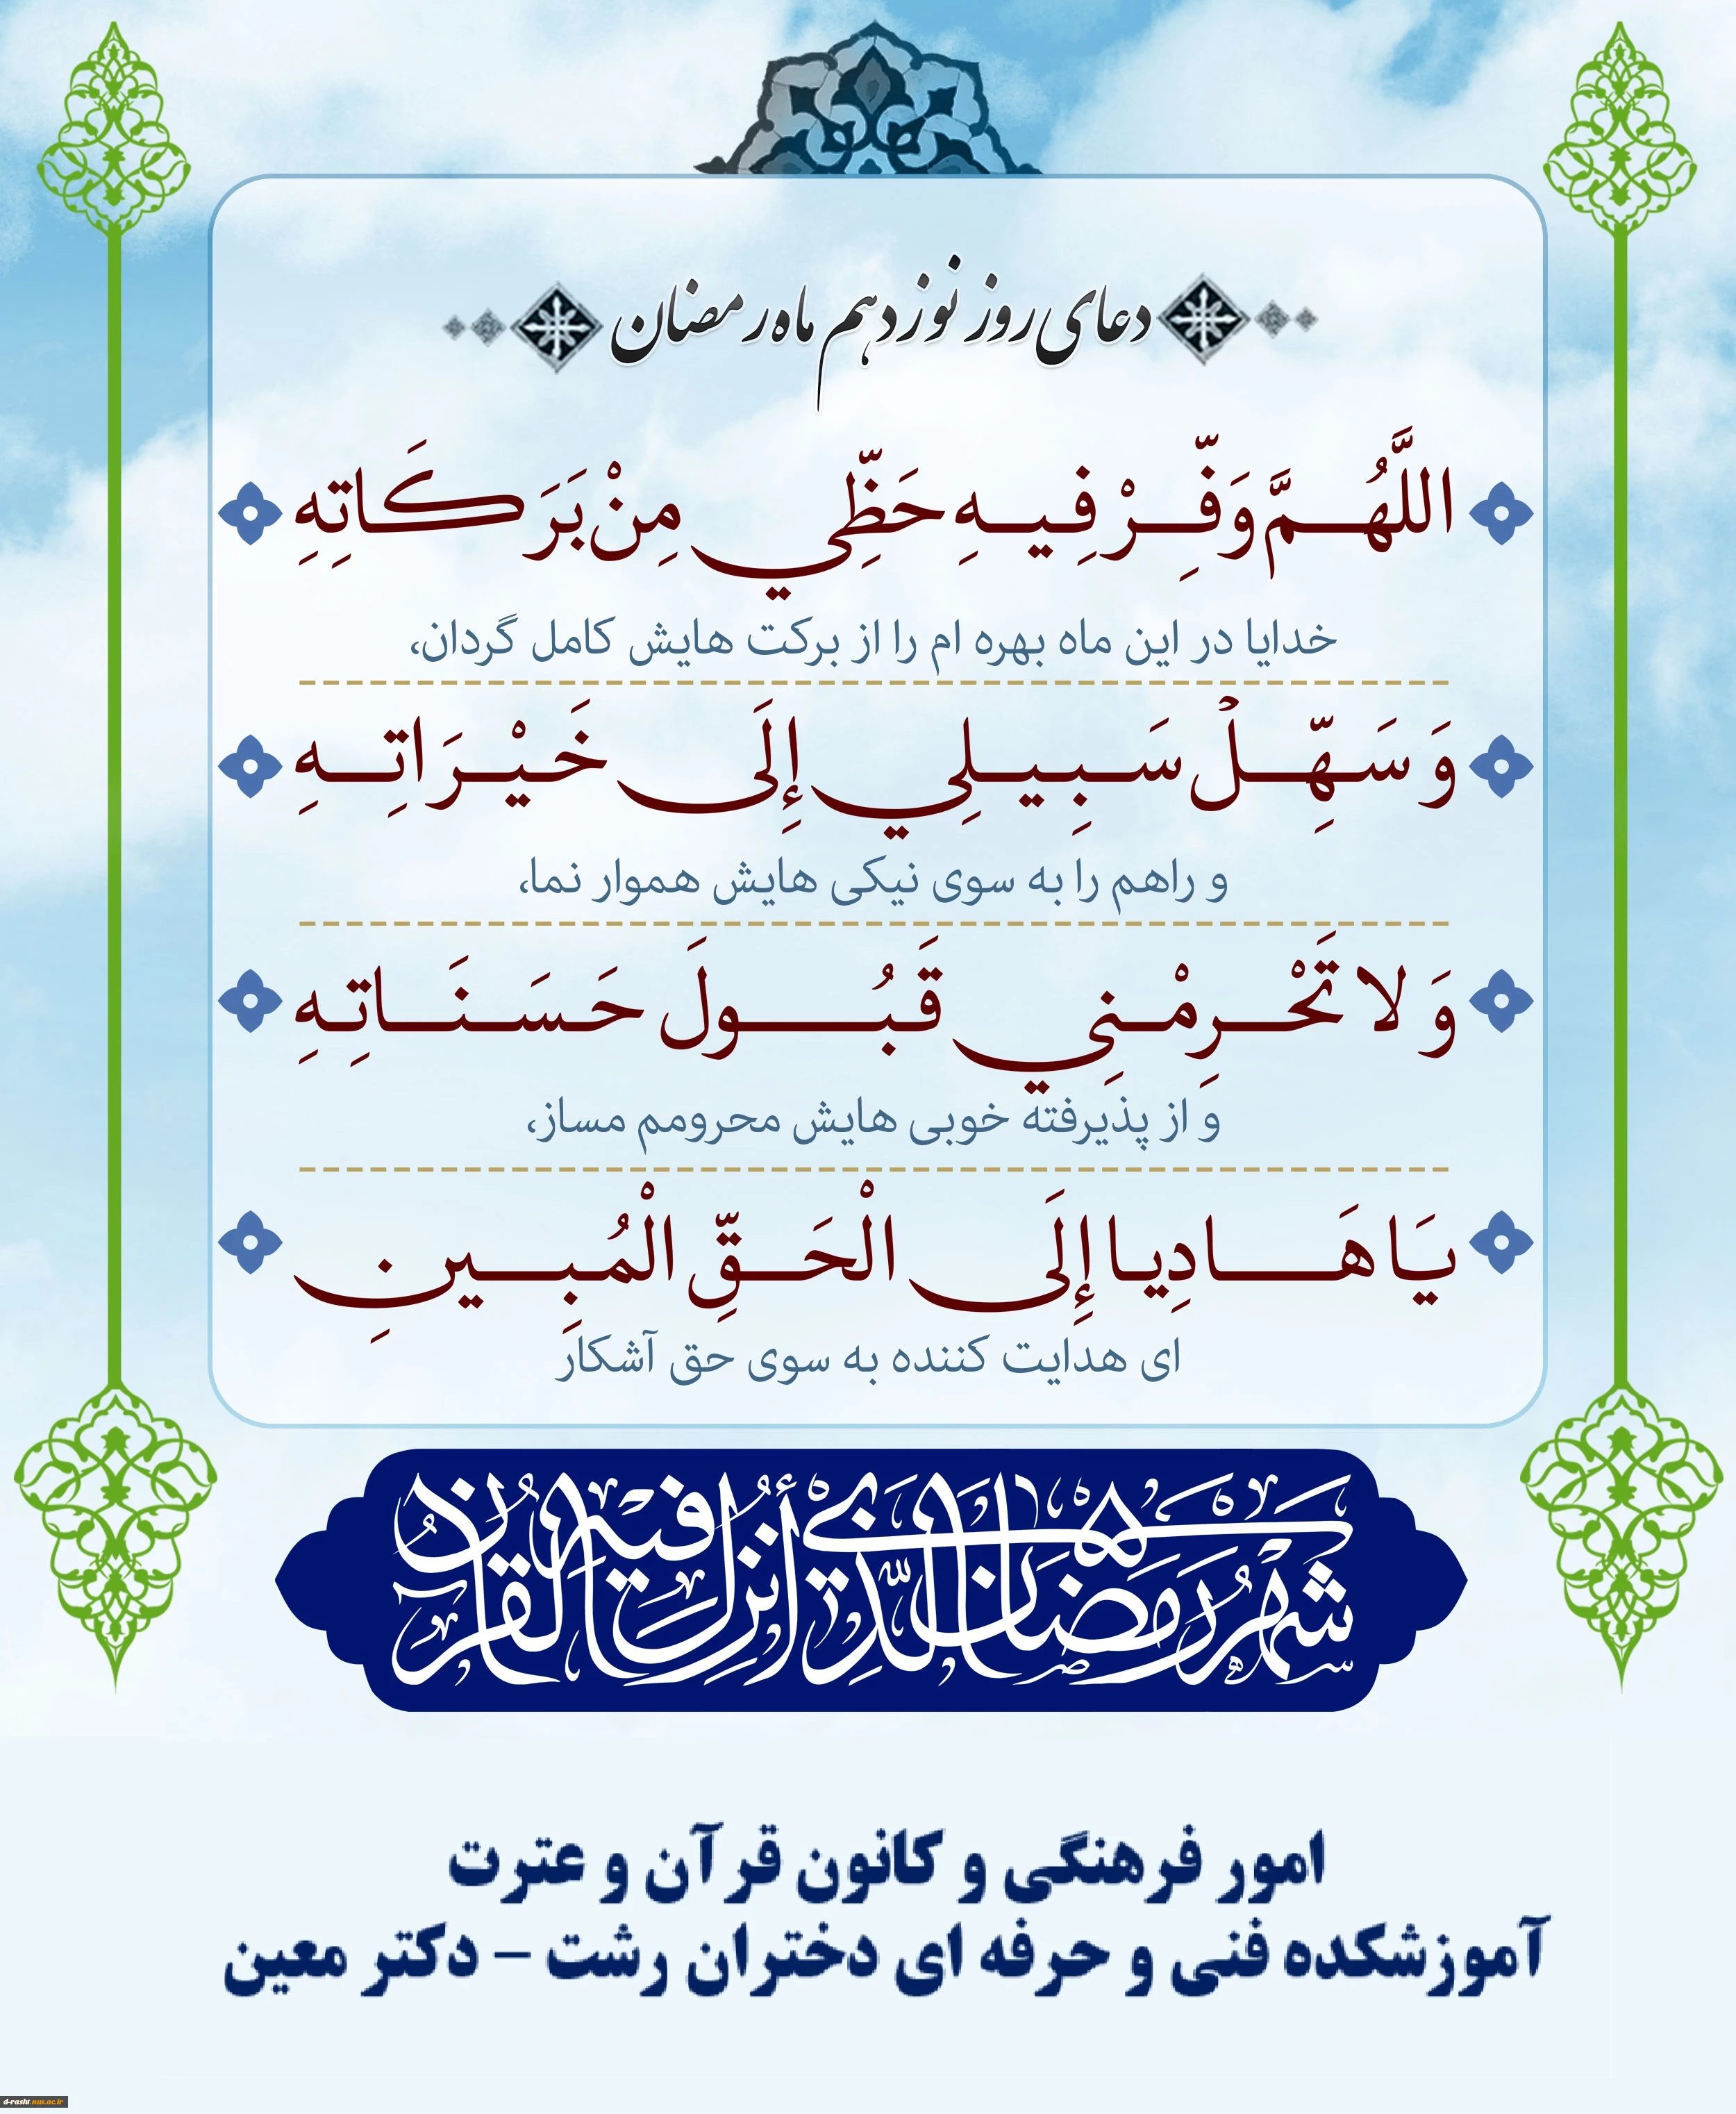 دعای روز نوزدهم ماه رمضان
اللَّهُمَّ وَفِّرْ فِيهِ حَظِّي مِنْ بَرَكَاتِهِ
خدایا در این ماه بهره ام را از برکت هایش کامل گردان،
وَ سَهِّلْ سَبِيلِي إِلَى خَيْرَاتِهِ
و راهم را به سوی نیکی هایش هموار نما،
وَ لا تَحْرِمْنِي قَبُولَ حَسَنَاتِهِ
و از پذیرفته خوبی هایش محرومم مساز،
يَا هَادِيا إِلَى الْحَقِّ الْمُبِينِ
ای هدایت کننده به سوی حق آشکار
شهر رمضان الذي أنزل فيه القرآن
امور فرهنگی و کانون قرآن و عترت
آموزشکده فنی و حرفه ای دختران رشت – دکتر معین
d-rasht.nus.ac.ir